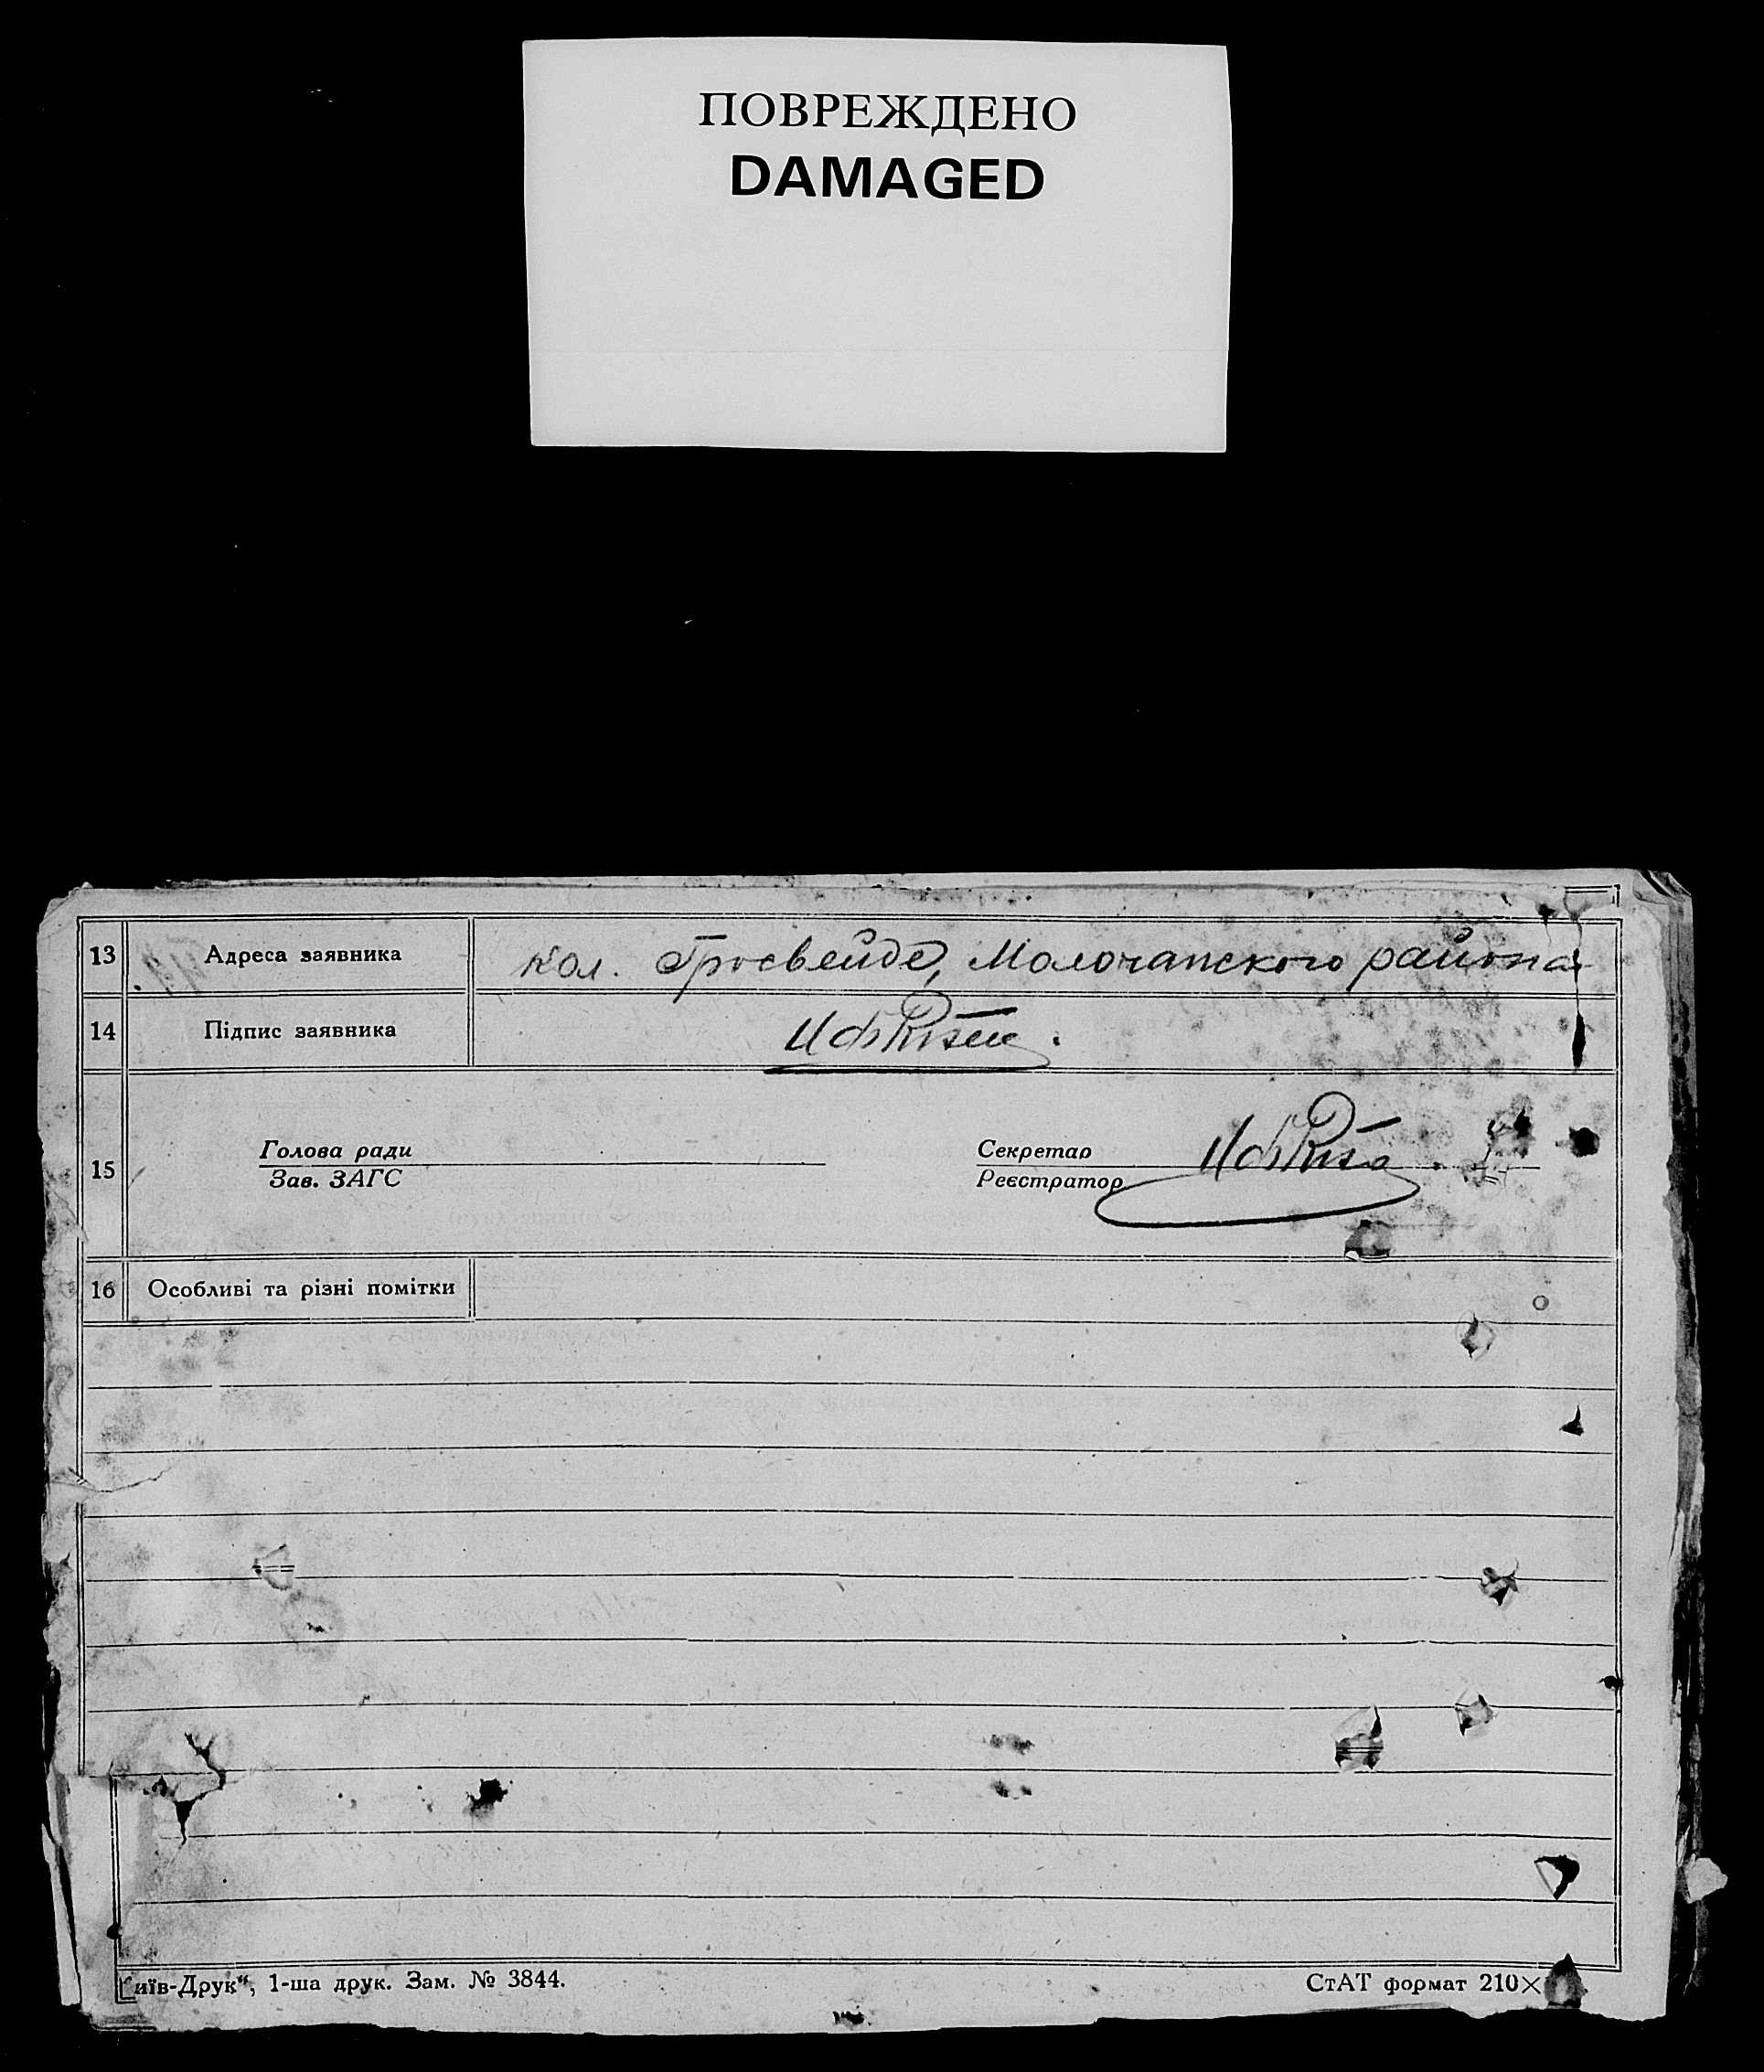 ПОВРЕЖДЕНО
DAMAGED
13 Адреса заявника кол. Гросвейде, Молочанского района
14 Підпис заявника
15 Голова ради Секретар
Зав. ЗАГС Реєстратор
16 Особливі та різні помітки
иїв-Друк“, 1-ша друк. Зам. № 3844. СтАТ формат 210×